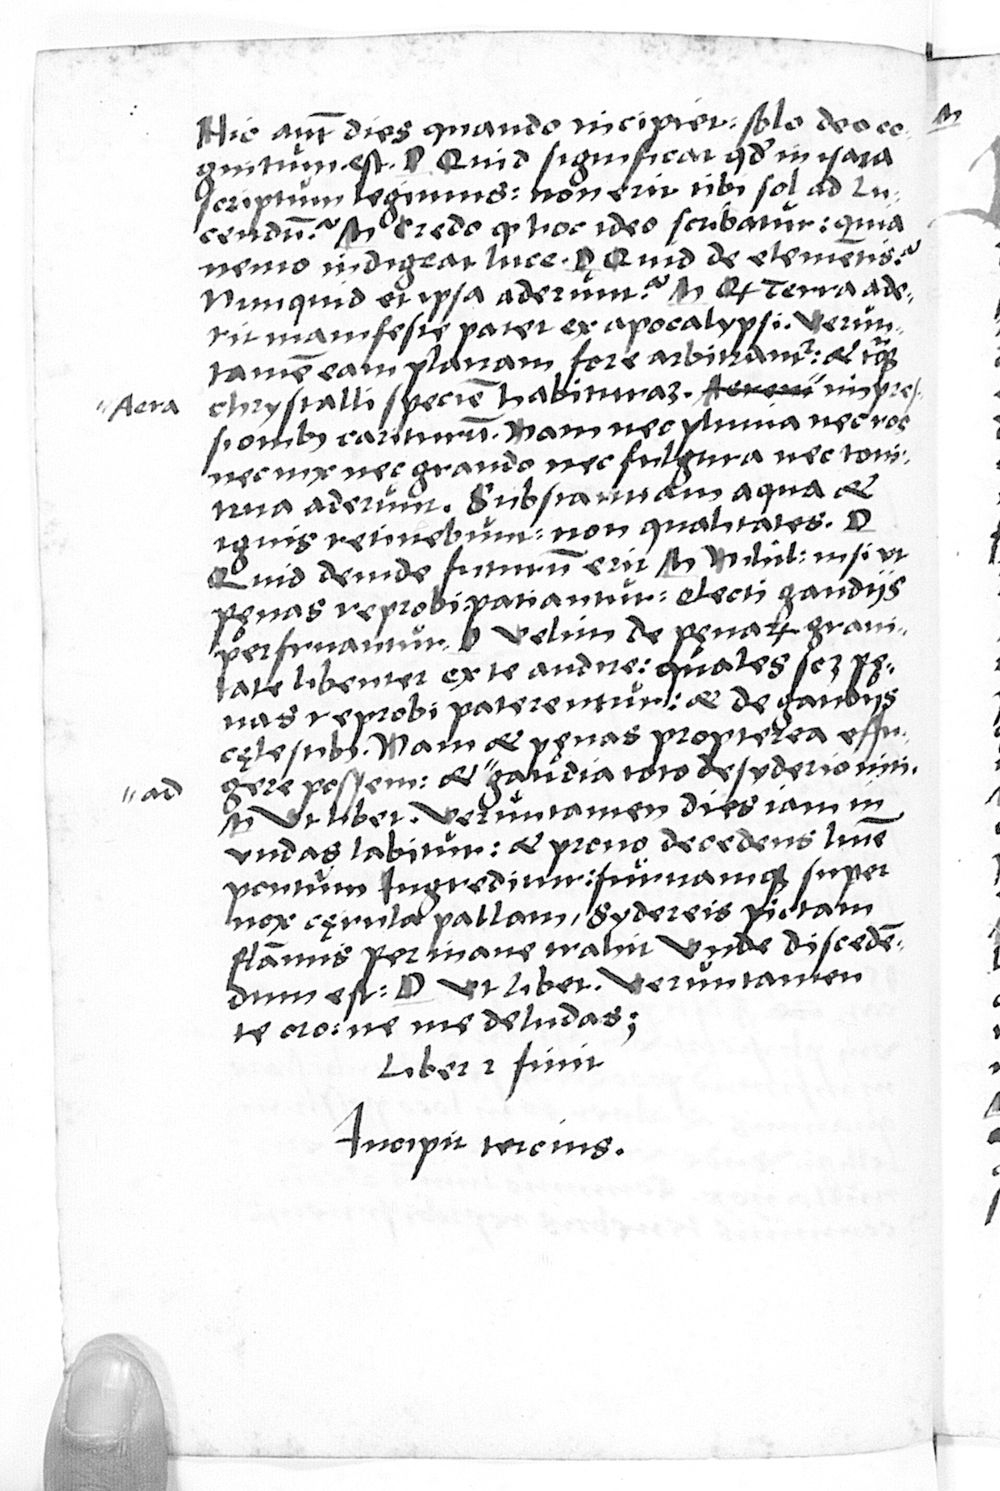 Hic aut̄ dies quando incipiet: solo deo co-
gnitum est. D Quid significat qd̓ in isaia
scriptum legimus: non erit tibi sol ad lu-
cendū? M Credo ꝙ hoc ideo scribatur: quia
nemo indigeat luce. D Quid de elemētis?
Nunquid et ipsa aderunt? M Et Terra ade-
rit manifeste patet ex apocalypsi. Verun-
tamē eam planam fore arbitrant᷑: & tāꝗ
"Aera chrystalli speciē habituraꝫ. Aerem impres-
sionibꝫ cariturū. Nam nec pluuia nec ros
nec nix nec grando nec fulgura nec toni-
trua aderunt. Substantiam aqua &
ignis retinebunt: non qualitates. D
Quid deinde futurū erit M Nihil: nisi ut
pęnas reprobi patiantur: electi gaudijs
perfruantur. D Velim de pęnaꝝ graui-
tate libenter ex te audire: quales scꝫ pę-
nas reprobi paterentur: & de gaudijs
cęlestibꝫ. Nam & pęnas propterea effu-
"ad gere possem: & "gaudia toto desyderio niti.
M Ut liber. Veruntamen dies iam in
vndas labitur: & prono decedens limē
pontum Ingreditur: furuamꝗ super
nox cęrula pallam, Sydereis pictam
flāmis per inane trahit Vnde discedē-
dum est: D Ut liber. Veruntamen
te oro: ne me deludas;
Liber 2 finit
Incipit tercius.
M